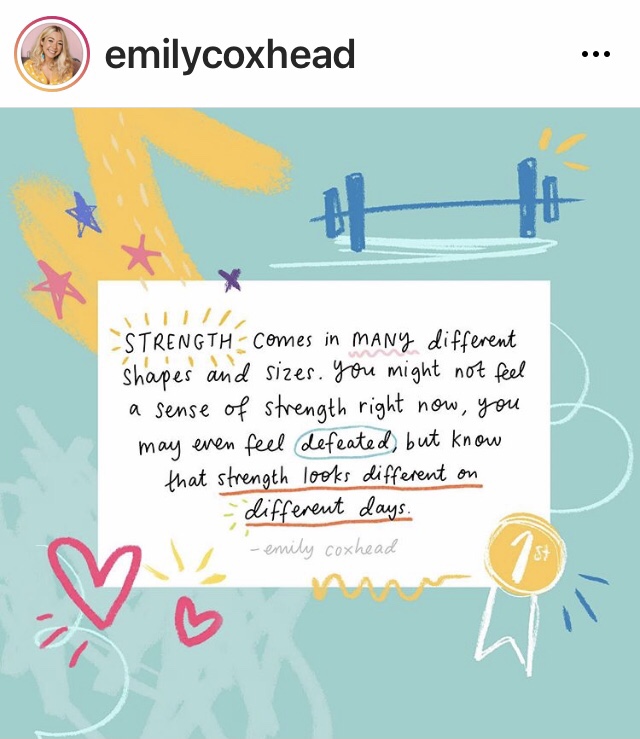 emilycoxhead
STRENGTH comes in MANY different
shapes and sizes. You might not feel
a sense of strength right now, you
may even feel defeated, but know
that strength looks different on
different days.
- emily coxhead
1st